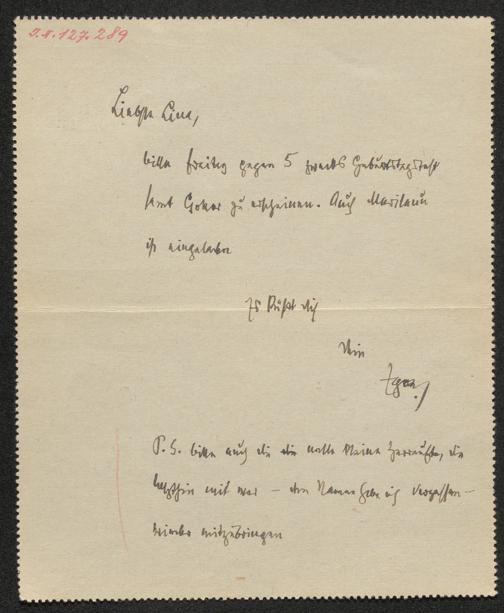 I.N. 127.289
Liebste Lina,
bitte Freitag gegen 5 zwecks Geburtstags
samt zu erscheinen. Auch
ist eingeladen
Es küßt dich
Dein
P.S. bitte auch die die nette kleine die
letzthin mit war – den Namen habe ich vergessen –
mitzubringen